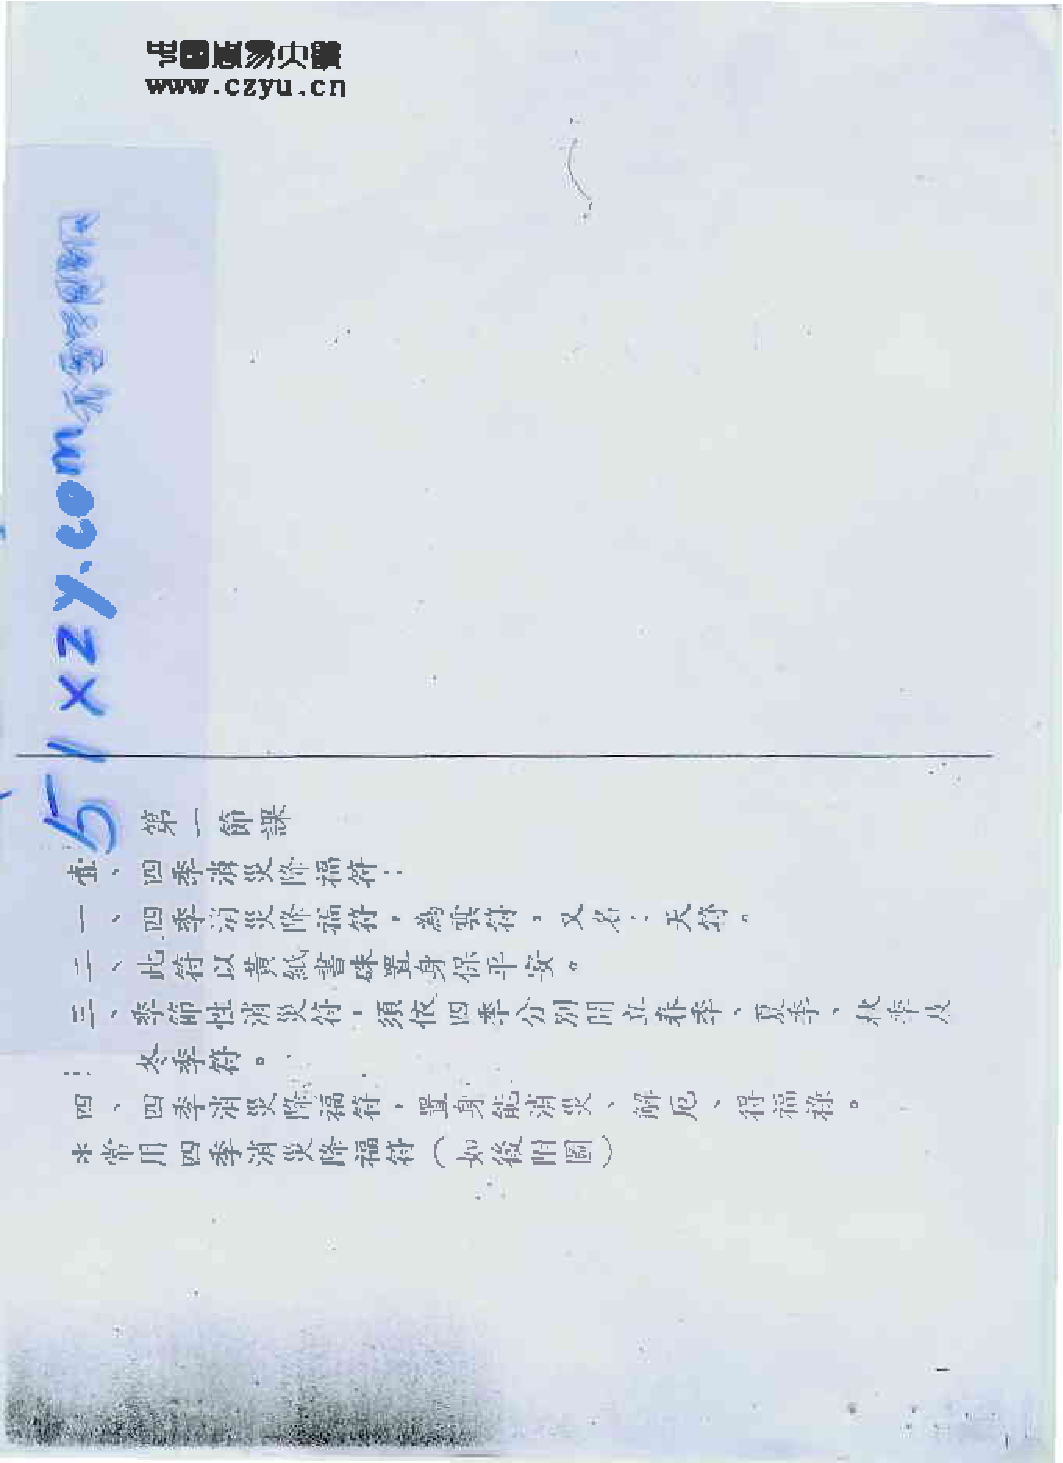 www.czyu.cn
51xzy.com
第一節課
壹、四季消災降福符：
一、四季消災降福符，為雲符，又名：天符。
二、此符以黃紙書硃置身保平安。
三、季節性消災符，須依四季分別開立春季、夏季、秋季及
冬季符。
四、四季消災降福符，置身能消災、解厄、得福祿。
＊常用四季消災降福符（如後附圖）